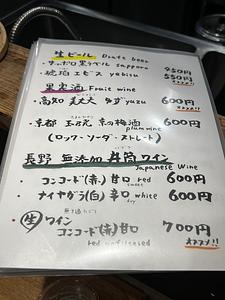 生ビール Draft beer
・サッポロ黒ラベル sapporo 450円
・琥珀エビス yebisu 550円
オススメ!!
果実酒 Fruit wine
・高知 ゆず yuzu 600円
・京都 京の梅酒 600円
plum wine
(ロック・ソーダ・ストレート)
長野 無添加 ワイン
Japanese wine
・コンコード(赤) 甘口 red 600円
sweet
・ナイヤガラ(白) 辛口 white 600円
dry
・生ワイン
コンコード(赤) 甘口 700円
red unfiltered オススメ!!